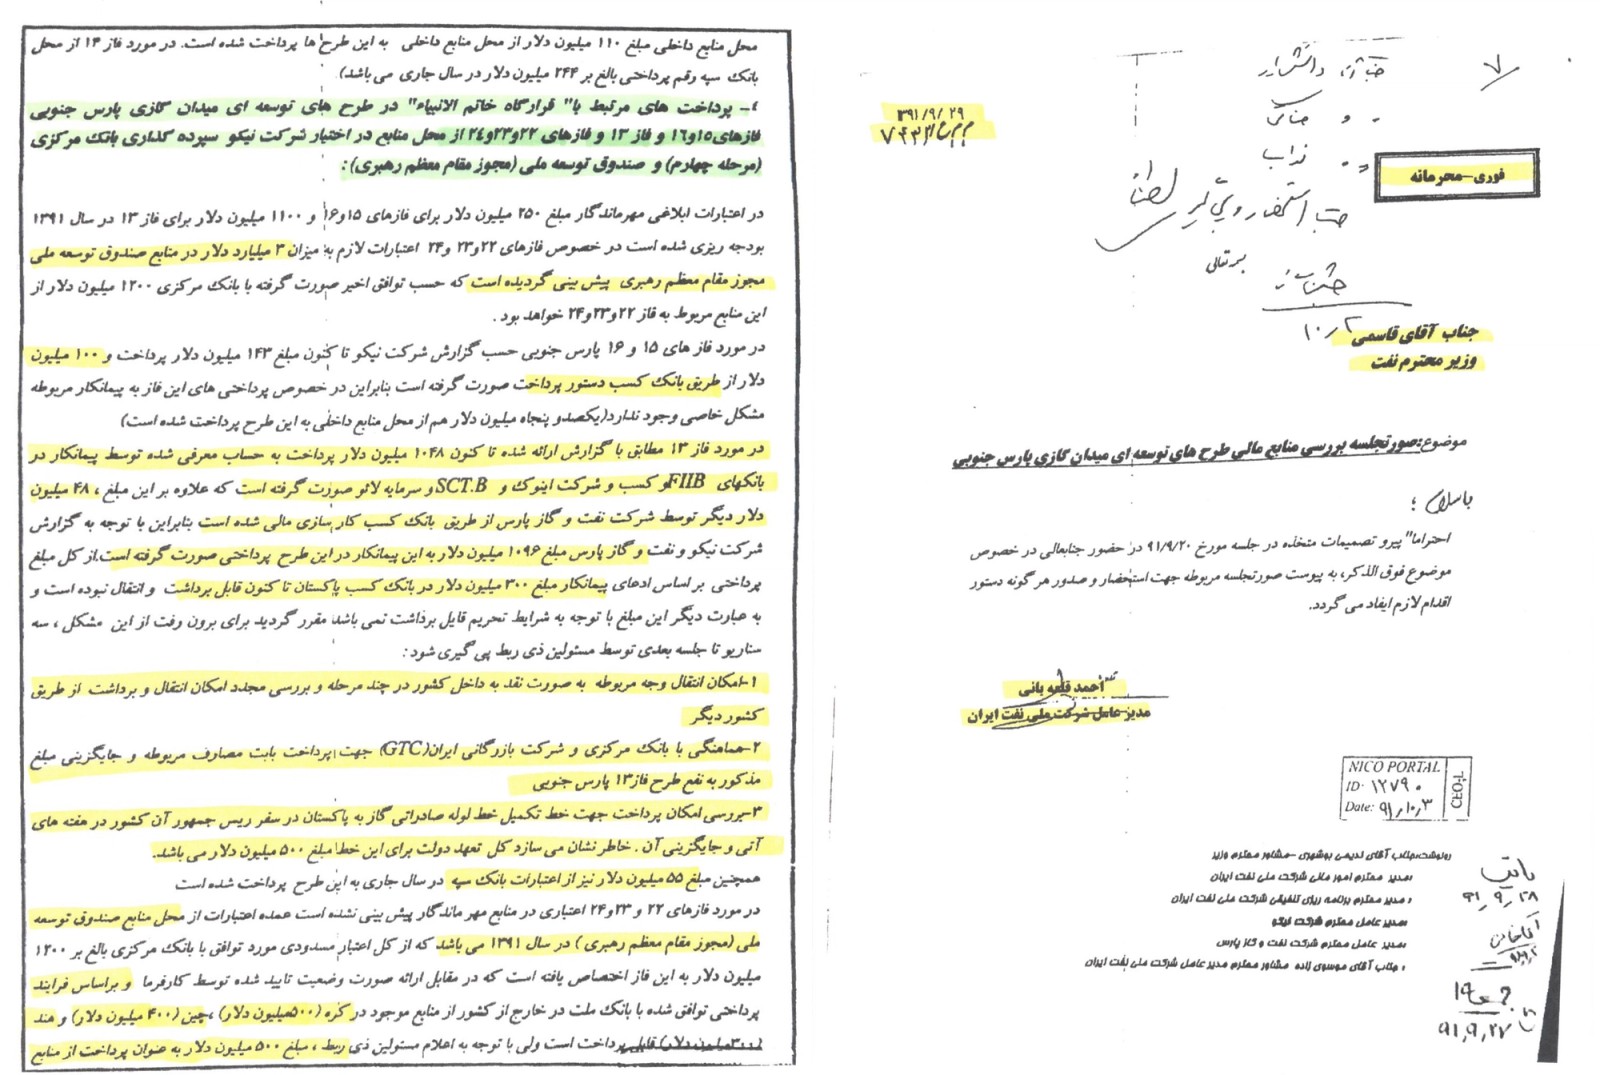 ۷
فوری-محرمانه
۳۹۱/۹/۲۹
بسمه تعالی
جناب آقای قاسمی
وزیر محترم نفت
موضوع:صورتجلسه بررسی منابع مالی طرح های توسعه ای میدان گازی پارس جنوبی
با سلام ؛
احتراما" پیرو تصمیمات متخذه در جلسه مورخ ۹۱/۹/۲۰ در حضور جنابعالی در خصوص
موضوع فوق الذکر، به پیوست صورتجلسه مربوطه جهت استحضار و صدور هر گونه دستور
اقدام لازم ایفاد می گردد.
احمد قلعه بانی
مدیر عامل شرکت ملی نفت ایران
NICO PORTAL
ID: ۱۲۷۹۰
Date: ۹۱,۱۰,۳
CEO-L
رونوشت:جناب آقای ندیمی بوشهری -مشاور محترم وزیر
:مدیر محترم امور مالی شرکت ملی نفت ایران
: مدیر محترم برنامه ریزی تلفیقی شرکت ملی نفت ایران
:مدیر عامل محترم شرکت نیکو
:مدیر عامل محترم شرکت نفت و گاز پارس
: جناب آقای موسوی زاده مشاور محترم مدیر عامل شرکت ملی نفت ایران
۹۱,۹,۲۸
۹۱,۹,۲۷
محل منابع داخلی مبلغ ۱۱۰ میلیون دلار از محل منابع داخلی به این طرح ها پرداخت شده است. در مورد فاز ۱۴ از محل
بانک سپه رقم پرداختی بالغ بر ۲۴۴ میلیون دلار در سال جاری می باشد)
۴- پرداخت های مرتبط با" قرارگاه خاتم الانبیاء" در طرح های توسعه ای میدان گازی پارس جنوبی
فازهای۱۵و۱۶ و فاز ۱۳ و فازهای ۲۲و۲۳و۲۴ از محل منابع در اختیار شرکت نیکو سپرده گذاری بانک مرکزی
(مرحله چهارم) و صندوق توسعه ملی (مجوز مقام معظم رهبری) :
در اعتبارات ابلاغی مهرماندگار مبلغ ۲۵۰ میلیون دلار برای فازهای ۱۵و۱۶ و ۱۱۰۰ میلیون دلار برای فاز ۱۳ در سال ۱۳۹۱
بودجه ریزی شده است در خصوص فازهای ۲۲و ۲۳ و۲۴ اعتبارات لازم به میزان ۳ میلیارد دلار در منابع صندوق توسعه ملی
مجوز مقام معظم رهبری پیش بینی گردیده است که حسب توافق اخیر صورت گرفته با بانک مرکزی ۱۲۰۰ میلیون دلار از
این منابع مربوط به فاز ۲۲و۲۳و۲۴ خواهد بود .
در مورد فاز های ۱۵ و ۱۶ پارس جنوبی حسب گزارش شرکت نیکو تا کنون مبلغ ۱۴۳ میلیون دلار پرداخت و ۱۰۰ میلیون
دلار از طریق بانک کسب دستور پرداخت صورت گرفته است بنابراین در خصوص پرداختی های این فاز به پیمانکار مربوطه
مشکل خاصی وجود ندارد(یکصدو پنجاه میلیون دلار هم از محل منابع داخلی به این طرح پرداخت شده است)
در مورد فاز ۱۳ مطابق با گزارش ارائه شده تا کنون ۱۰۴۸ میلیون دلار پرداخت به حساب معرفی شده توسط پیمانکار در
بانکهای FIIBو کسب و شرکت اینوک و SCT.B و سرمایه لائو صورت گرفته است که علاوه بر این مبلغ ، ۴۸ میلیون
دلار دیگر توسط شرکت نفت و گاز پارس از طریق بانک کسب کار سازی مالی شده است بنابراین با توجه به گزارش
شرکت نیکو و نفت و گاز پارس مبلغ ۱۰۹۶ میلیون دلار به این پیمانکار در این طرح پرداختی صورت گرفته است.از کل مبلغ
پرداختی بر اساس ادعای پیمانکار مبلغ ۳۰۰ میلیون دلار در بانک کسب پاکستان تا کنون قابل برداشت و انتقال نبوده است و
به عبارت دیگر این مبلغ با توجه به شرایط تحریم قابل برداشت نمی باشد مقرر گردید برای برون رفت از این مشکل ، سه
سناریو تا جلسه بعدی توسط مسئولین ذی ربط پی گیری شود :
۱-امکان انتقال وجه مربوطه به صورت نقد به داخل کشور در چند مرحله و بررسی مجدد امکان انتقال و برداشت از طریق
کشور دیگر
۲-هماهنگی با بانک مرکزی و شرکت بازرگانی ایران(GTC) جهت پرداخت بابت مصارف مربوطه و جایگزینی مبلغ
مذکور به نفع طرح فاز۱۳ پارس جنوبی
۳-بررسی امکان پرداخت جهت خط تکمیل خط لوله صادراتی گاز به پاکستان در سفر ریس جمهور آن کشور در هفته های
آتی و جایگزینی آن . خاطر نشان می سازد کل تعهد دولت برای این خط مبلغ ۵۰۰ میلیون دلار می باشد.
همچنین مبلغ ۵۵ میلیون دلار نیز از اعتبارات بانک سپه در سال جاری به این طرح پرداخت شده است
در مورد فازهای ۲۲ و ۲۳و۲۴ اعتباری در منابع مهر ماندگار پیش بینی نشده است عمده اعتبارات از محل منابع صندوق توسعه
ملی (مجوز مقام معظم رهبری ) در سال ۱۳۹۱ می باشد که از کل اعتبار مسدودی مورد توافق با بانک مرکزی بالغ بر ۱۲۰۰
میلیون دلار به این فاز اختصاص یافته است که در مقابل ارائه صورت وضعیت تایید شده توسط کارفرما و براساس فرایند
پرداختی توافق شده با بانک ملت در خارج از کشور از منابع موجود در کره (۵۰۰میلیون دلار) ،چین (۴۰۰ میلیون دلار) و هند
(۳۰۰میلیون دلار) قابل پرداخت است ولی با توجه به اعلام مسئولین ذی ربط ، مبلغ ۵۰۰ میلیون دلار به عنوان پرداخت از منابع